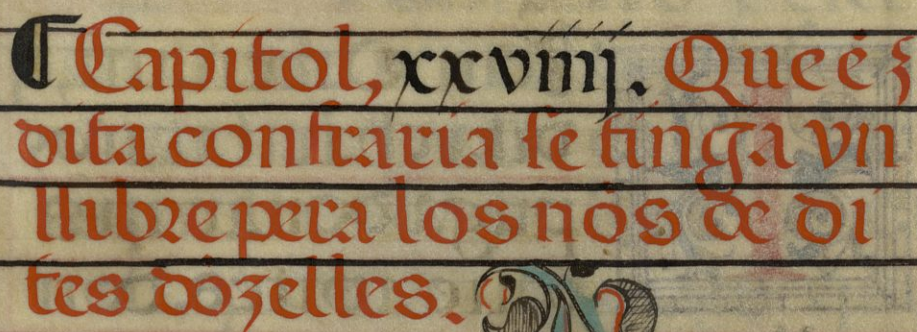 ¶ Capitol, xxviiiij. Que é z
dita confraria se tinga vn
llibre pera los nōs de di
tes dōzelles.